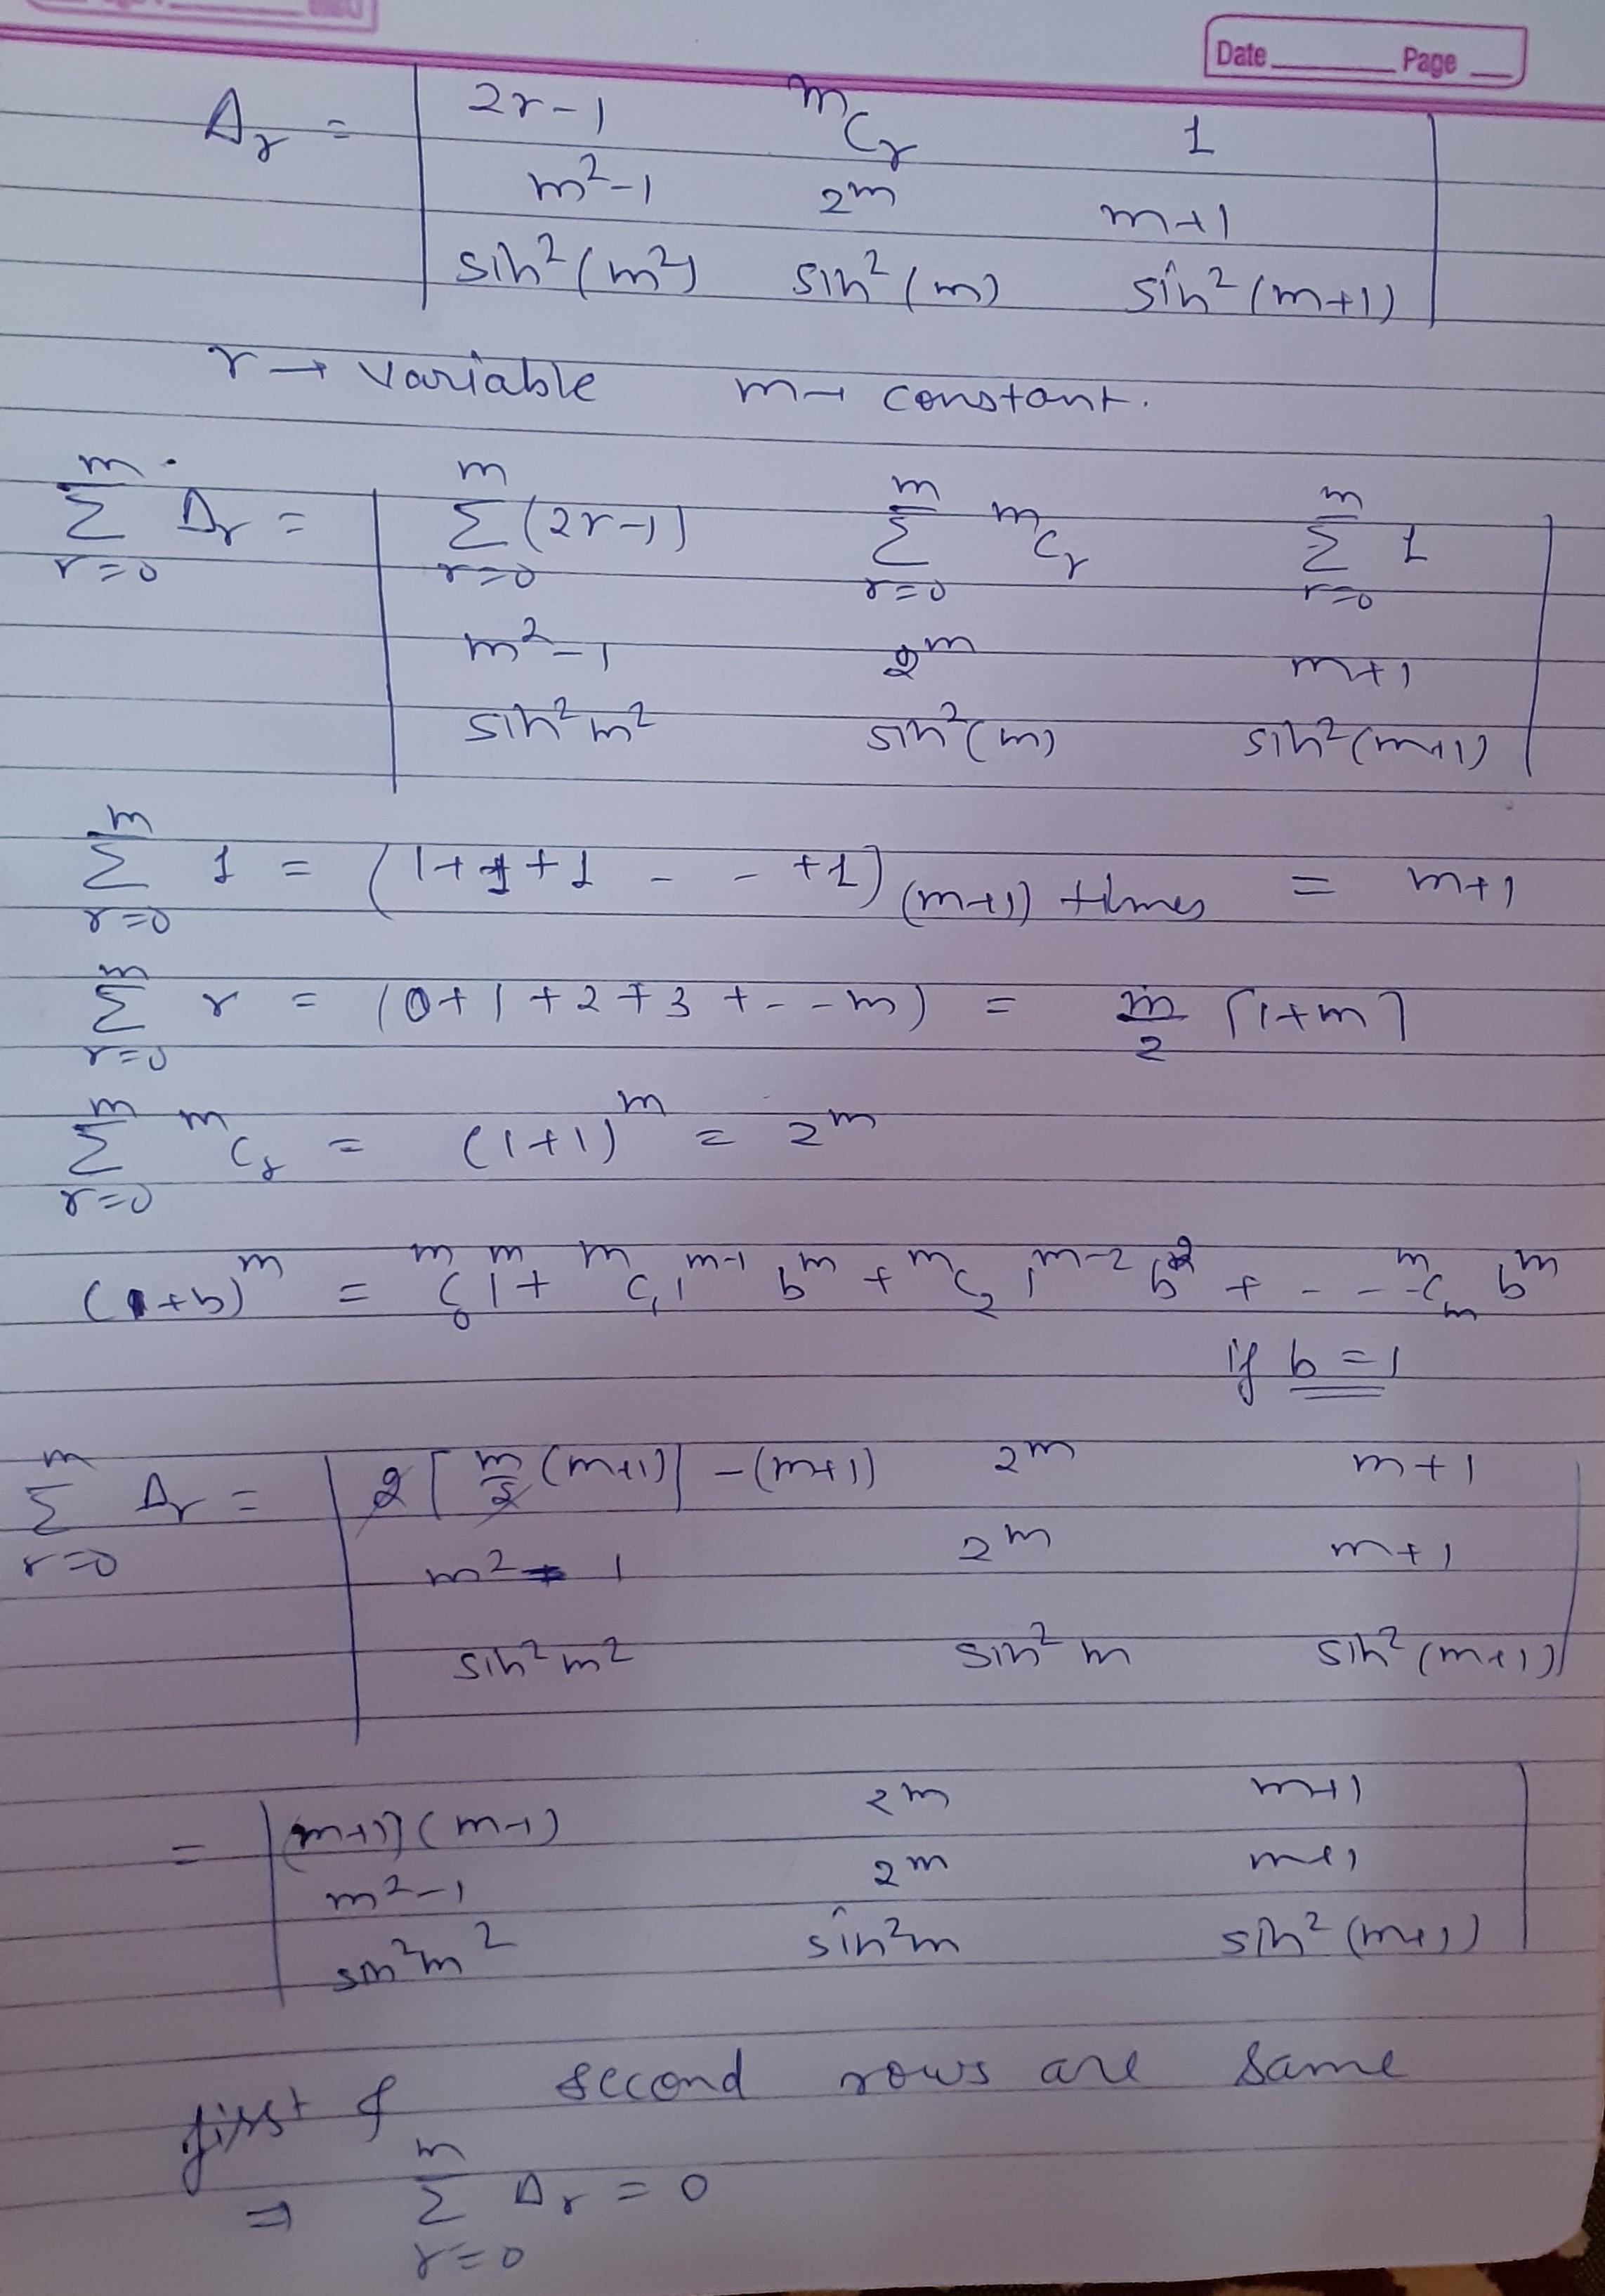 Date Page
Δr = | 2r-1 mCr 1 |
| m²-1 2^m m+1 |
| sin²(m²) sin²(m) sin²(m+1) |
r → variable m → constant.
m m m m
Σ Δr = | Σ (2r-1) Σ mCr Σ 1 |
r=0 r=0 r=0 r=0
| m²-1 2^m m+1 |
| sin²m² sin²(m) sin²(m+1) |
m
Σ 1 = (1+1+1 - - +1) (m+1) times = m+1
r=0
m
Σ r = (0+1+2+3+--m) = m/2 [1+m]
r=0
m
Σ mCr = (1+1)^m = 2^m
r=0
(1+b)^m = mC0 1^m + mC1 1^m-1 b^m + mC2 1^m-2 b² + - - - mCm b^m
if b=1
m
Σ Δr = | 2[m/2 (m+1)] -(m+1) 2^m m+1 |
r=0
| m²-1 2^m m+1 |
| sin²m² sin²m sin²(m+1) |
= | (m+1)(m-1) 2^m m+1 |
| m²-1 2^m m+1 |
| sin²m² sin²m sin²(m+1) |
first & second rows are same
m
⇒ Σ Δr = 0
r=0